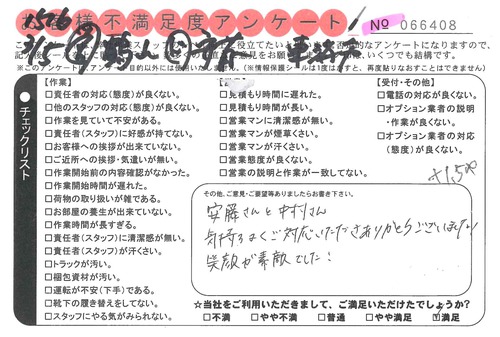 お客様不満足度アンケート
№ 066408
チェックリスト
【作業】
□責任者の対応(態度)が良くない。
□他のスタッフの対応(態度)が良くない。
□作業を見ていて不安がある。
□責任者(スタッフ)に好感が持てない。
□お客様への挨拶が出来ていない。
□ご近所への挨拶・気遣いが無い。
□作業開始前の内容確認がなかった。
□作業開始時間が遅れた。
□荷物の取り扱いが雑である。
□お部屋の養生が出来ていない。
□作業時間が長すぎる。
□責任者(スタッフ)に清潔感が無い。
□責任者(スタッフ)が汗くさい。
□トラックが汚い。
□梱包資材が汚い。
□運転が不安(下手)である。
□靴下の履き替えをしてない。
□スタッフにやる気がみられない。
□見積もり時間に遅れた。
□見積もり時間が長い。
□営業マンに清潔感が無い。
□営業マンが煙草くさい。
□営業マンが汗くさい。
□営業態度が良くない。
□営業の説明と作業が一致してない。
【受付・その他】
□電話の対応が良くない。
□オプション業者の説明
・作業が良くない。
□オプション業者の対応
(態度)が良くない。
その他、ご意見・ご要望等ありましたらお書き下さい。
安藤さんと中村さん
気持ちよくご対応いただきありがとうございました!
笑顔が素敵でした!
☆当社をご利用いただきまして、ご満足いただけたでしょうか?
□不満 □やや不満 □普通 □やや満足 ☑満足